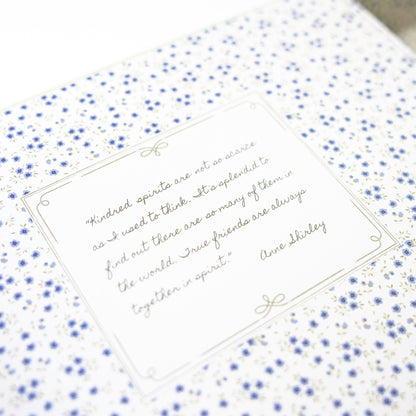 "Kindred spirits are not so scarce
as I used to think. It's splendid to
find out there are so many of them in
the world. True friends are always
together in spirit." Anne Shirley